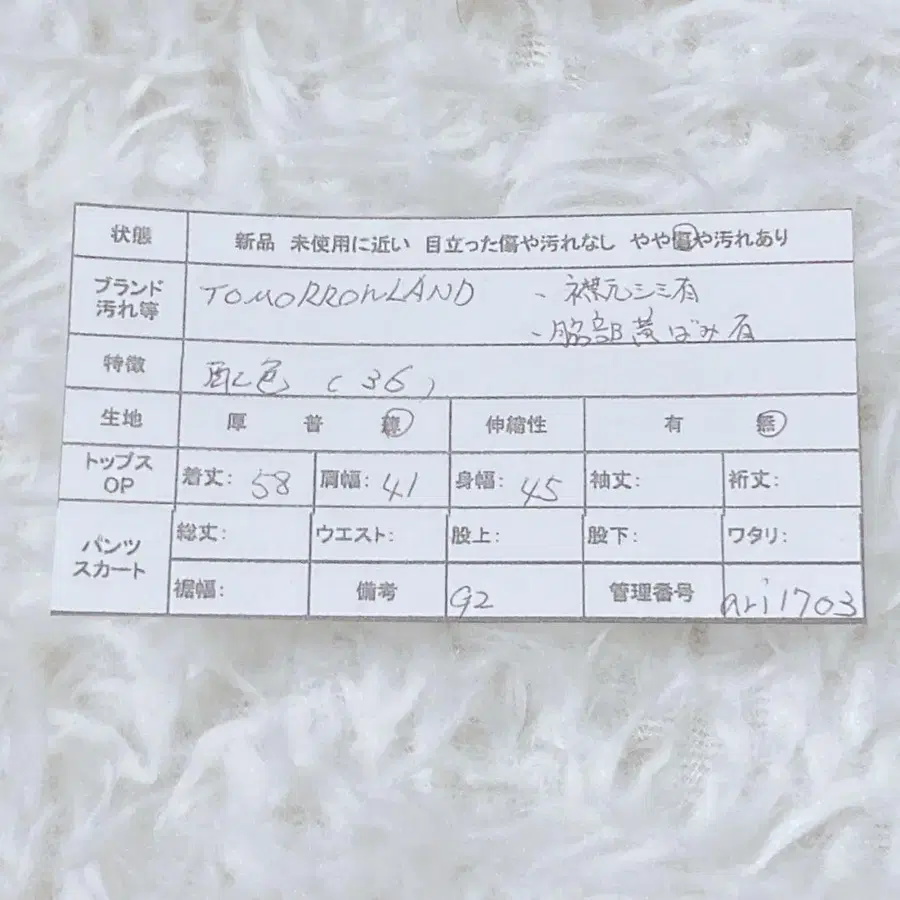 状態 新品 未使用に近い 目立った傷や汚れなし やや傷や汚れあり
ブランド TOMORROWLAND ・襟元シミ有
汚れ等 ・脇部黄ばみ有
特徴 配色 (36)
生地 厚 普 薄 伸縮性 有 無
トップス
OP 着丈: 58 肩幅: 41 身幅: 45 袖丈: 裄丈:
パンツ
スカート 総丈: ウエスト: 股上: 股下: ワタリ:
裾幅: 備考 G2 管理番号 ari1703